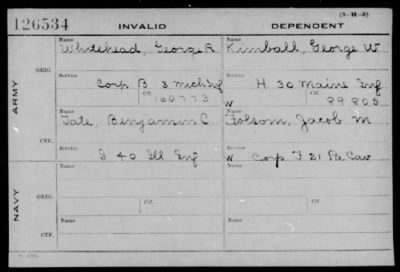 (3-H-3)
126534 INVALID DEPENDENT
Name Name
Whitehead, George R Kimball, George W
ORIG.
Service Service
Corp B 3 Mich Inf H 30 Maine Inf
Ctf. Ctf.
160773 W 89805
ARMY
Name Name
Tate, Benjamin C Folsom, Jacob M
CTF.
Service Service
I 40 Ill Inf W Corp F 21 Pa Cav
Name Name
ORIG.
Service Ctf. Service Ctf.
NAVY
Name Name
CTF.
Service Service